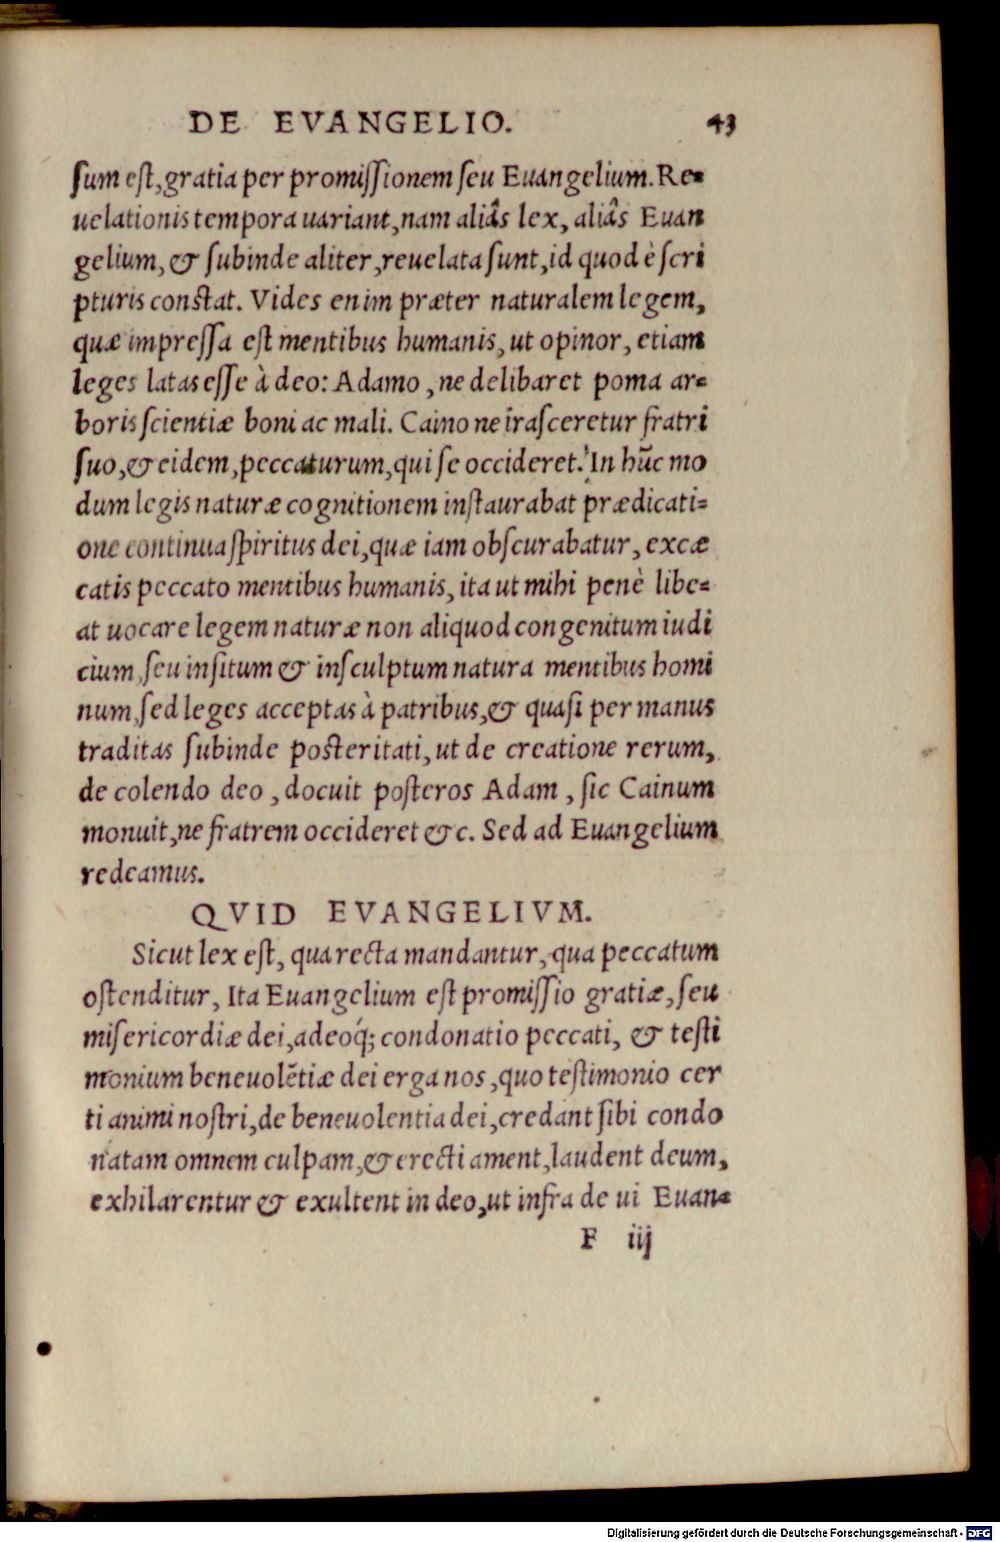 DE EVANGELIO. 43
ſum eſt, gratia per promiſſionem ſeu Euangelium. Re-
uelationis tempora uariant, nam aliâs lex, aliâs Euan
gelium, & ſubinde aliter, reuelata ſunt, id quod è ſcri
pturis conſtat. Vides enim præter naturalem legem,
quæ impreſſa eſt mentibus humanis, ut opinor, etiam
leges latas eſſe à deo: Adamo, ne delibaret poma ar-
boris ſcientiæ boni ac mali. Caino ne iraſceretur fratri
ſuo, & eidem, peccaturum, qui ſe occideret. In hūc mo
dum legis naturæ cognitionem inſtaurabat prædicati-
one continua ſpiritus dei, quæ iam obſcurabatur, excæ
catis peccato mentibus humanis, ita ut mihi penè libe-
at uocare legem naturæ non aliquod congenitum iudi
cium, ſeu inſitum & inſculptum natura mentibus homi
num, ſed leges acceptas à patribus, & quaſi per manus
traditas ſubinde poſteritati, ut de creatione rerum,
de colendo deo, docuit poſteros Adam, ſic Cainum
monuit, ne fratrem occideret &c. Sed ad Euangelium
redeamus.
QVID EVANGELIVM.
Sicut lex eſt, qua recta mandantur, qua peccatum
oſtenditur, Ita Euangelium eſt promiſſio gratiæ, ſeu
miſericordiæ dei, adeoq́; condonatio peccati, & teſti
monium beneuolētiæ dei erga nos, quo teſtimonio cer
ti animi noſtri, de beneuolentia dei, credant ſibi condo
natam omnem culpam, & erecti ament, laudent deum,
exhilarentur & exultent in deo, ut infra de ui Euan-
F iij
Digitalisierung gefördert durch die Deutsche Forschungsgemeinschaft - DFG